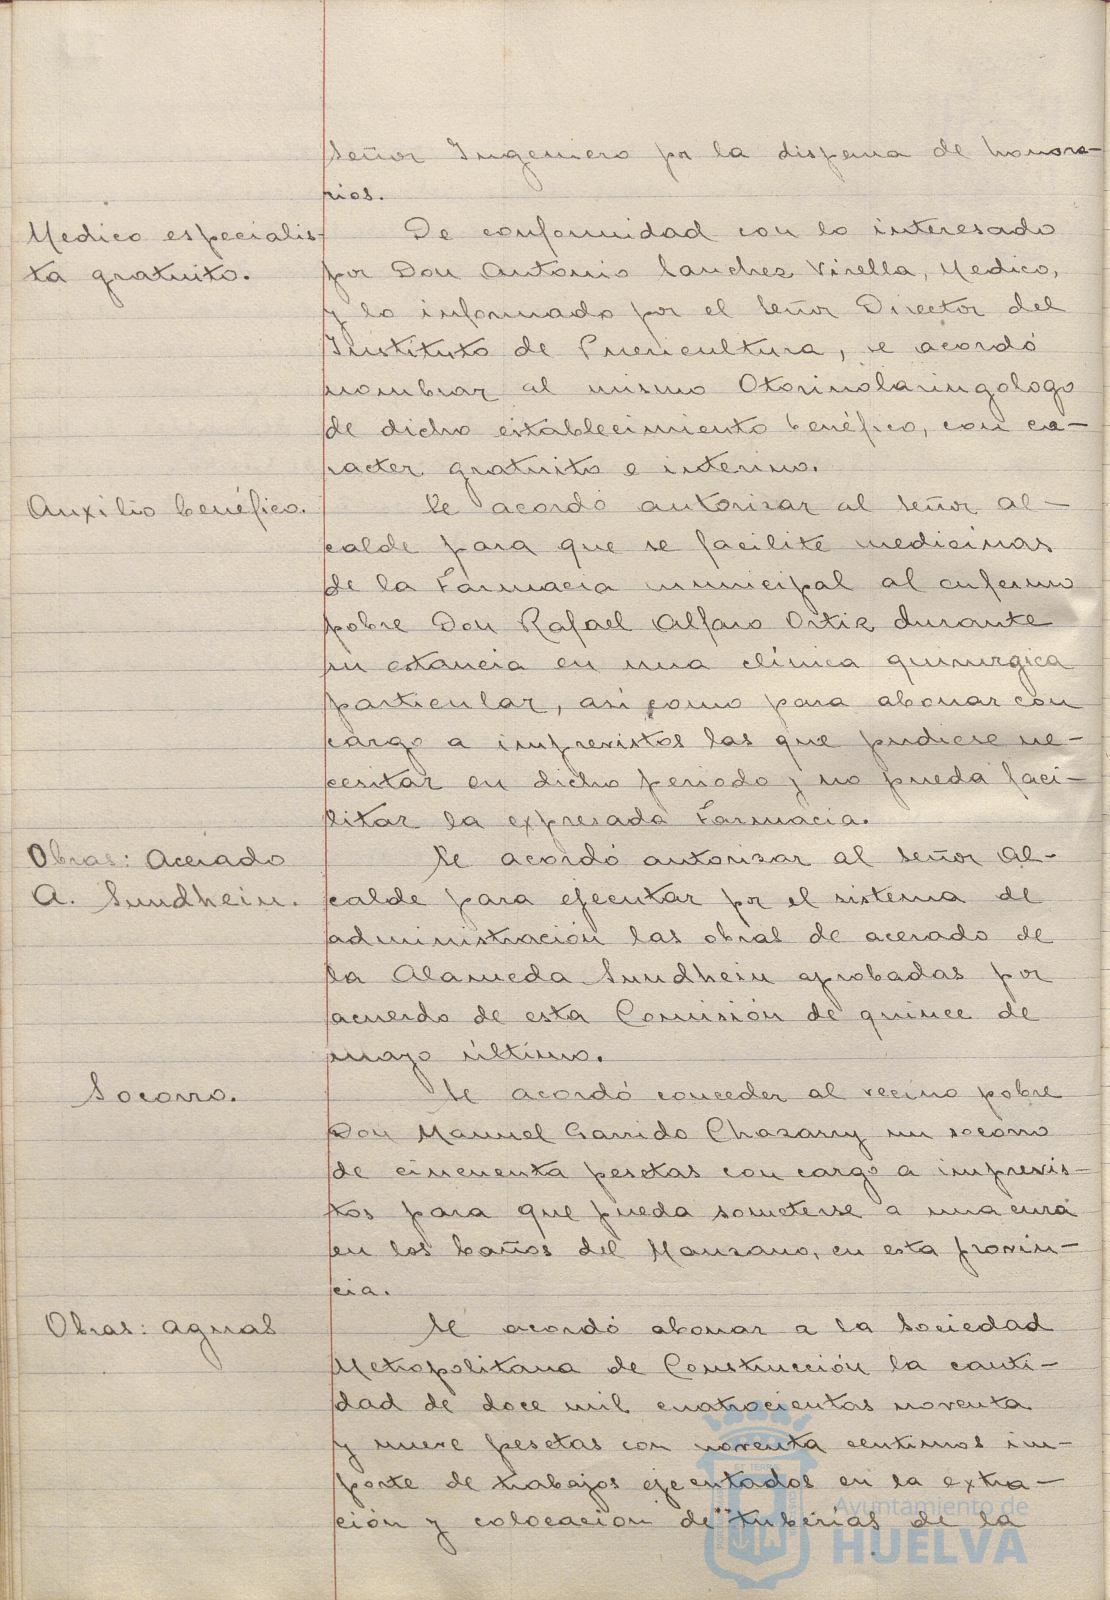 Señor Ingeniero pr la dispensa de honora-
rios.
Medico especialis-
ta gratuito.
De conformidad con lo interesado
por Don Antonio Sanchez Virella, Medico,
y lo informado por el Señor Director del
Instituto de Puericultura, se acordó
nombrar al mismo Otorinolaringologo
de dicho establecimiento benéfico, con ca-
racter gratuito e interino.
Auxilio benéfico.
Se acordó autorizar al Señor al-
calde para que se facilite medicinas
de la Farmacia municipal al enfermo
pobre Don Rafael Alfaro Ortiz durante
su estancia en una clínica quirurgica
particular, asi como para abonar con
cargo a imprevistos las que pudiese ne-
cesitar en dicho periodo y no pueda faci-
litar la expresada Farmacia.
Obras: Acerado
A. Sundhein.
Se acordó autorizar al Señor Al-
calde para ejecutar pr el sistema de
administración las obras de acerado de
la Alameda Sundhein aprobadas por
acuerdo de esta Comisión de quince de
mayo último.
Socorro.
Se acordó conceder al vecino pobre
Don Manuel Garrido Chazarry un socorro
de cincuenta pesetas con cargo a imprevis-
tos para que pueda someterse a una cura
en los baños del Manzano, en esta provin-
cia.
Obras: aguas
Se acordó abonar a la Sociedad
Metropolitana de Construcción la canti-
dad de doce mil cuatrocientas noventa
y nueve pesetas con noventa centimos im-
porte de trabajos ejecutados en la extra-
ción y colocacion de tuberias de la
Ayuntamiento de
HUELVA